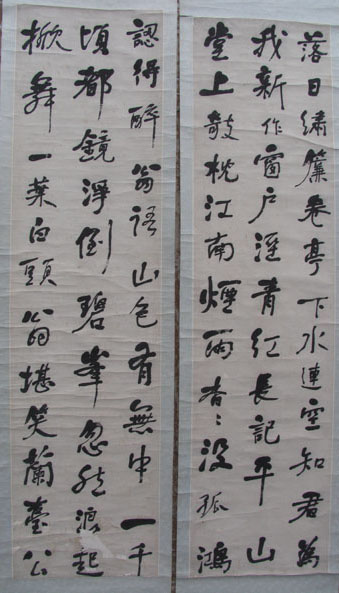 落日繡簾卷亭下水連空知君為
我新作窗户溼青紅長記平山
堂上攲枕江南煙雨杳〻没孤鴻
認得醉翁語山色有無中一千
頃都鏡淨倒碧峯忽然浪起
掀舞一葉白頭翁堪笑蘭臺公